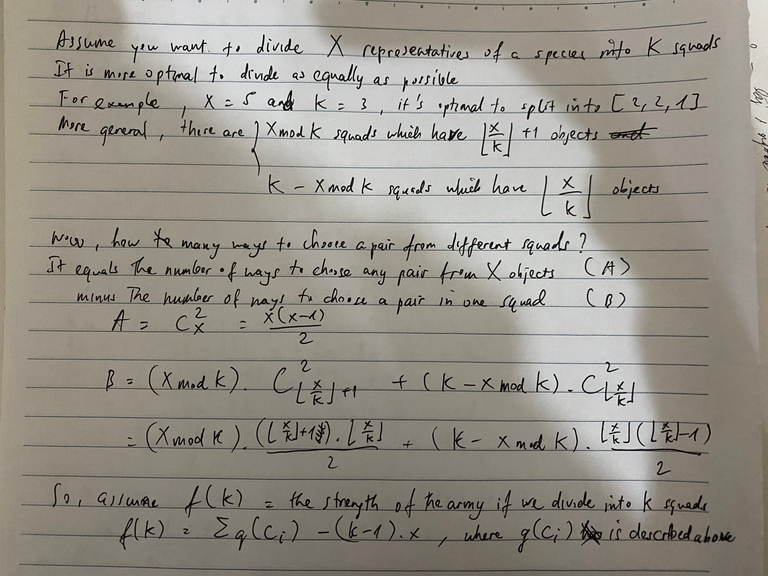 Assume you want to divide X representatives of a species into K squads
It is more optimal to divide as equally as possible
For example, X = 5 and k = 3, it's optimal to split into [2, 2, 1]
More general, there are { X mod K squads which have ⌊x/k⌋ +1 objects
K - X mod k squads which have ⌊x/k⌋ objects
Now, how many ways to choose a pair from different squads?
It equals the number of ways to choose any pair from X objects (A)
minus the number of ways to choose a pair in one squad (B)
A = C²ₓ = x(x-1)/2
B = (X mod k). C²_{⌊x/k⌋+1} + (k - x mod k). C²_{⌊x/k⌋}
= (X mod k). (⌊x/k⌋+1).⌊x/k⌋/2 + (k - x mod k). ⌊x/k⌋(⌊x/k⌋-1)/2
So, assume f(k) = the strength of the army if we divide into k squads
f(k) = Σg(Cᵢ) - (k-1).x, where g(Cᵢ) is described above